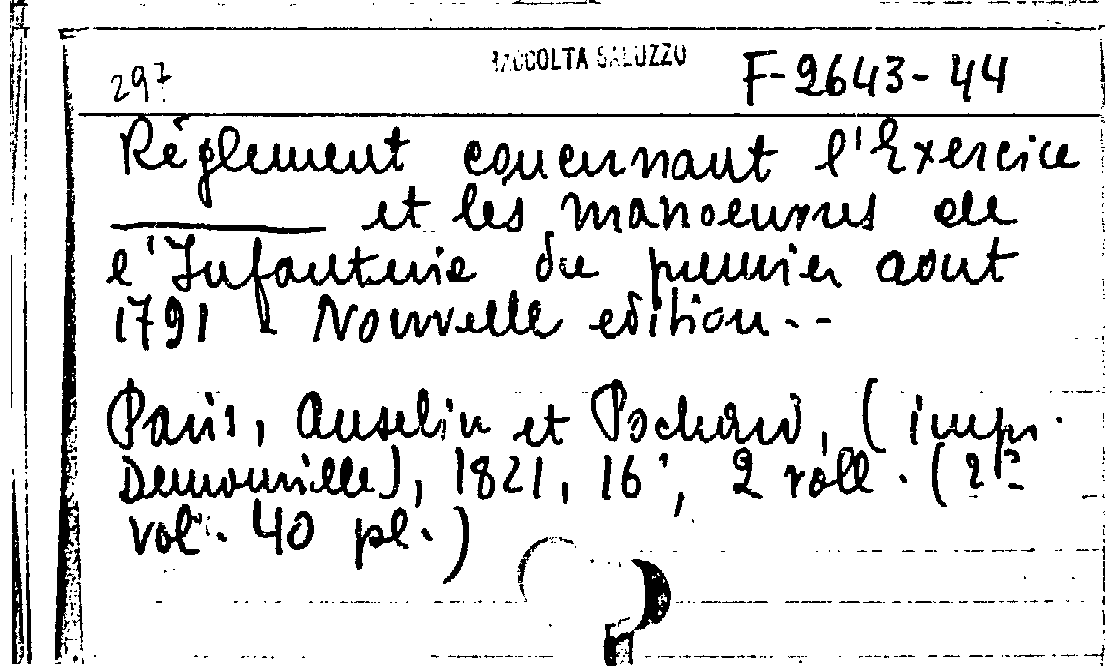 297 RACCOLTA SALUZZO F-2643-44
Réglement concernant l'Exercice
et les manoeuvres de
l'Infanterie du premier aout
1791 - Nouvelle edition--
Paris, Anselin et Pochard, (impr.
Demonville), 1821, 16°, 2 voll. (2°
vol. 40 pl.)